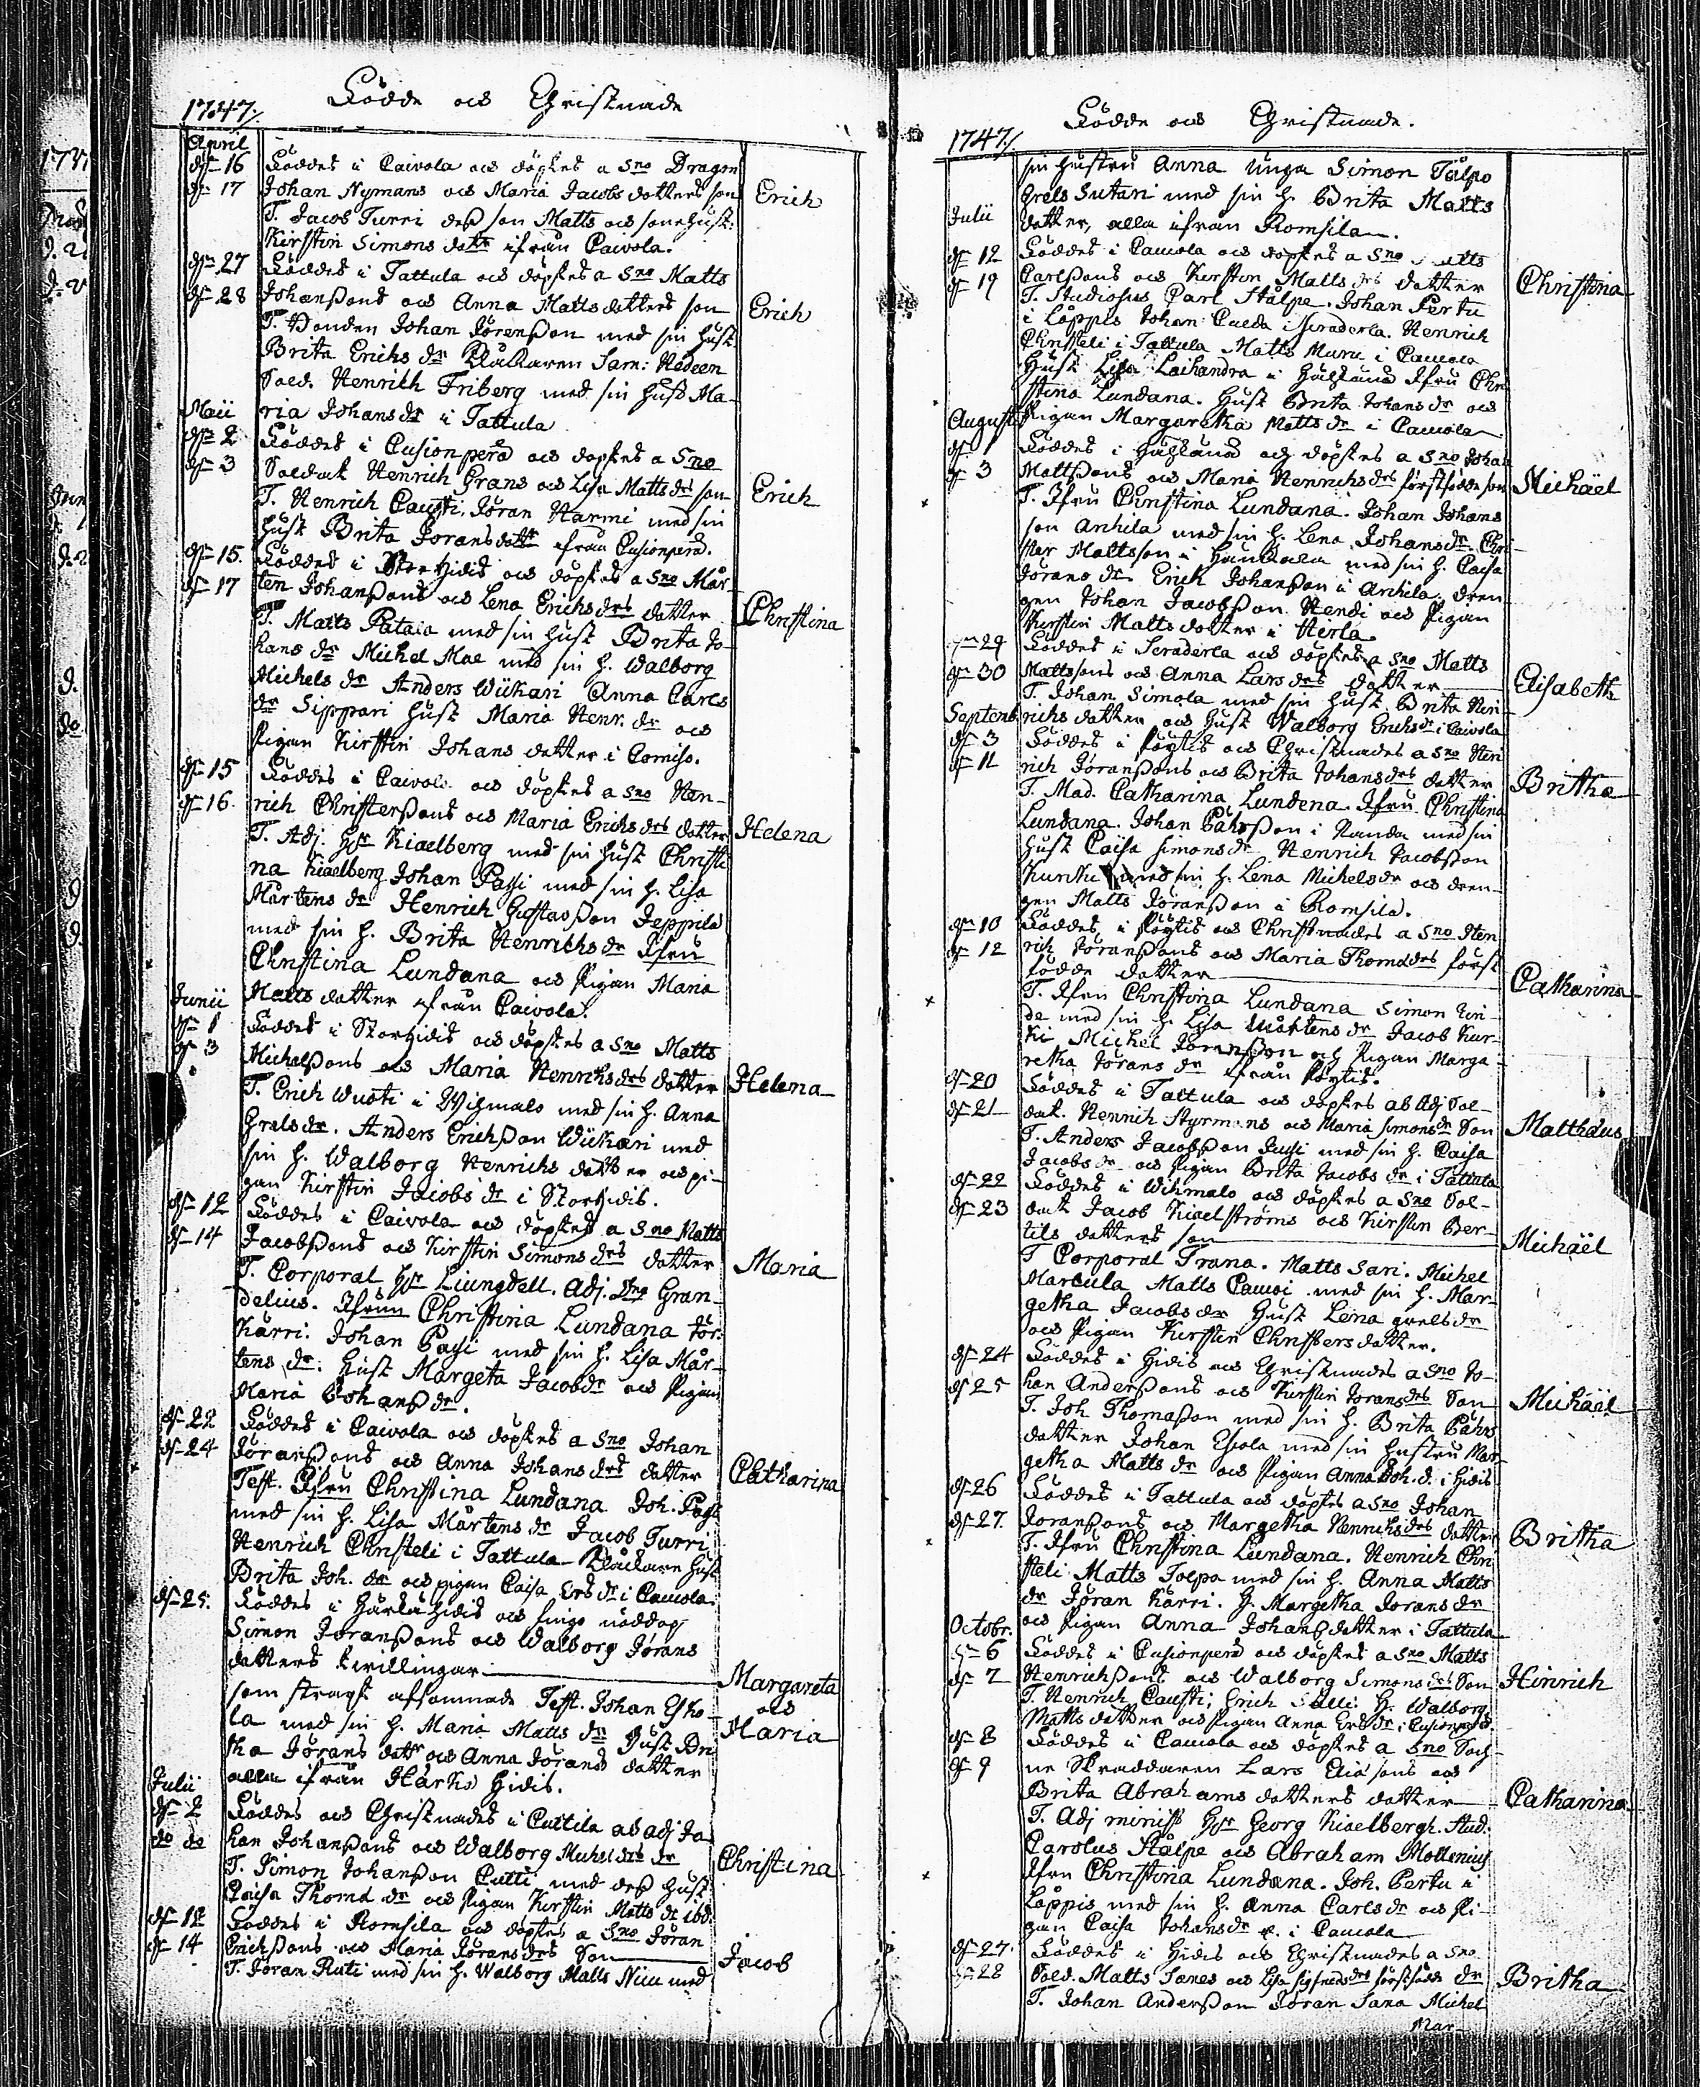 1747/.
Födde och Christnade
April
d. 16 Föddes i Caivola och döptes a Sno Dragon
d. 17 Johan Nymans och Maria Jacobs dotters son Erich
T. Jacob Turri dess son Matts och sonehust:
Kirstin Simons dotr ifrån Caivola.
d. 27 Föddes i Tattula och döptes a Sno Matts
d. 28 Johanssons och Anna Mattsdotters son Erich
T. Bonden Johan Jörensson med sin hust
Brita Erichs dr Klåckaren Sam: Hedeen
Sold. Henrich Friberg med sin hust Ma-
Maii ria Johans dr i Tattula
d. 2 Föddes i Cusionperä och döptes a Sno
d. 3 Soldat Henrich Grans och Lisa Matts drs son Erich
T. Henrich Causti, Jöran Harmi med sin
hust Brita Joransdottr ifrån Cusionperä.
d. 15. Föddes i Storhidis och döptes a Sno Mår-
d. 17 ten Johanssons och Lena Erichs drs dotter Christina
T. Matts Pataia med sin hust Brita Jo-
hans dr Michel Mae med sin h. Walborg
Michels dr Anders Wiikari Anna Carls
dr Sippari hust Maria Henr. dr och
Pigan Kirstin Johans dotter i Comiso.
d. 15 Föddes i Caivola och döptes a Sno Hen-
d. 16. rich Christerssons och Maria Erichs drs dotter Helena
T. Adj. Hr Kiaelberg med sin hust Christi
na Kiaelberg Johan Passi med sin h. Lisa
Mårtens dr Henrich Gustavsson Jeppila
med sin h. Brita Henrichs dr Jfru
Christina Lundana och Pigan Maria
Junii Matts dotter ifrån Caivola.
d. 1 Föddes i Storhidis och döptes a Sno Matts
d. 3 Michelssons och Maria Henrichs drs dotter Helena
T. Erich Wusti i Wihmalo med sin h. Anna
Grelsdr. Anders Erichsson Wiikari med
sin h. Walborg Henrichs dotter och pi-
gan Kirstin Jacobs dr i Storhidis.
d. 12 Föddes i Caivola och döptes a Sno Matts
d. 14 Jacobssons och Kirstin Simons drs dotter Maria
T. Corporal Hr Liungdell. Adj. Dno Gran-
delius. Jfrun Christina Lundana Jör.
Kärri. Johan Passi med sin h. Lisa Mår-
tens dr. hust Margeta Jacobs dr och Pigan
Maria Johans dr.
d. 22 Föddes i Caivola och döptes a Sno Johan
d. 24 Joranssons och Anna Johans drs dotter Catharina
Testt. Jfru Christina Lundana Joh. Passi
med sin h. Lisa Mårtens dr Jacob Turri
Henrich Christeli i Tattula Klåckare hust
Brita Joh. dr och pigan Caisa Ers dr i Cauola.
d. 25. Föddes i Härkähidis och fingo nöddop
Simon Joranssons och Walborg Jörans
dotters twillingar Margareta
som strapt afsomnade Testt. Johan Esko- och
la med sin h. Maria Matts dr hust Bri Maria
tha Jörans dotr och Anna Jörans dotter
alla ifrån Härkä hidis.
Julii
d. 2 Föddes och Christnades i Cuttila ab adj Jo-
do do han Johanssons och Walborg Michels drs dr Christina
T. Simon Johansson Cutti med dess hust
Caisa Thoma dr och Pigan Kirstin Matts dr ibd.
d. 12 Föddes i Romsila och döptes a Sno Jöran
d. 14 Erichssons och Maria Jörans drs Son Jacob
T. Jöran Ruti med sin h. Walborg Matts Niu med
1747/.
Födde och Christnade.
sin hustru Anna Unga Simon Tålpo
Grels Sutari med sin h. Brita Matts
Julii dotter, alla ifrån Romsila.
d. 12 Föddes i Cauola och döptes a Sno Matts
d. 19 Carlssons och Kirstin Matts drs dotter Christina
T. Studiosus Carl Stålpe. Johan Pertu
i Löppis Johan Caeda i Seraderla. Henrich
Christeli i Tattula Matts Muru i Cauola
hust Lisa Laihandra i Jfru Chri
stina Lundana. hust Brita Johans dr och
August. Pigan Margaretha Matts dr i Cauola
d. 1 Föddes i och döptes a Sno Johan
d. 3 Mattssons och Maria Henrichs drs förstfödde son Michäel
T. Jfru Christina Lundana. Johan Johans
son Anhila med sin h. Lena Johans dr. Chri-
ster Mattsson i med sin h. Caisa
Jörans dr Erich Johansson i Anhila. dren
gen Johan Jacobsson Hendi och Pigan
Kirstin Matts dotter i Hirla
d. 29 Föddes i Seraderla och döptes a Sno Matts
d. 30 Mattssons och Anna Lars drs dotter Elisabeth
T. Johan Simola med sin hust Brita Hen-
Septemb. richs dotter och hust Walborg Erichs dr i Caivola
d. 3 Föddes i Pöytis och Christnades a Sno Hen
d. 11 rich Joranssons och Brita Johans drs dotter Britha
T. Mad. Catharina Lundena. Jfru Christina
Lundana. Johan Påhrsson i Nanda med sin
hust Caisa Simons dr Henrich Jacobsson
Kunku med sin h. Lena Michels dr och dren-
gen Matts Jöransson i Romsila.
d. 10 Föddes i Pöytis och Christnades a Sno Hen
d. 12 rich Joranssons och Maria Thoma drs först
födde dotter Catharina
T. Jfru Christina Lundana Simon
de med sin h. Lisa Mårtens dr Jacob Kur-
ki Michel Joransson och Pigan Marga-
retha Jörans dr ifrån Pöytis.
d. 20 Föddes i Tattula och döptes ab Adj Sol-
d. 21 dat. Henrich Styrmans och Maria Simons dr Son Matthæus
T. Anders Jacobsson Jussi med sin h. Caisa
Jacobs dr och Pigan Brita Jacobs dr i Tattula
d. 22 Föddes i Wihmalo och döptes a Sno Sol-
d. 23 dat Jacob Kiaelströms och Kirstin Ber-
tils dotters son Michäel
T Corporal Trana. Matts Sari. Michel
Marcula Matts Cauoi med sin h. Mar-
getha Jacobs dr hust Lena grels dr
och Pigan Kirstin Christers dotter.
d. 24 Föddes i Hidis och Christnades a Sno Jo-
d. 25 han Anderssons och Kirstin Jorans drs Son Michäel
T. Joh Thomasson med sin h. Brita Påhrs
dotter Johan Escola med sin hustru Mar-
getha Matts dr och Pigan Anna Joh. d. i Hidis
d. 26 Föddes i Tattula och döptes a Sno Johan
d. 27. Joranssons och Margetha Henrichs drs dotter Britha
T. Jfru Christina Lundana. Henrich Chri
steli Matts Tolpa med sin h. Anna Matts
dr Jöran Kärri. h. Margetha Jorans dr
Octobr. och Pigan Anna Johans dotter i Tattula
d. 6 Föddes i Cusionperä och döptes a Sno Matts
d. 7 Henrichssons och Walborg Simons drs Son Hinrich
T. Henrich Causti; Erich Salli h. Walborg
Matts dotter och Pigan Anna Ers dr i Cusionperä.
d. 8 Föddes i Cauola och döptes a Sno Sock-
d. 9 ne Skraddaren Lars sons och
Brita Abrahams dotters dotter Catharina
T. Adj minist Hr Georg Kiaelbergh. Stud.
Carolus Stålpe och Abraham Mollenius
Jfru Christina Lundana. Joh. Pertu i
Löppis med sin h. Anna Carls dr och Pi-
gan Caisa Johans dr i Cauola
d. 27. Föddes i Hidis och Christnades a Sno
d. 28 Sold. Matts Sanes och Lisa Sigfreds drs förstfödde dr Britha
T. Johan Andersson Jöran Sana Michel
Mar-